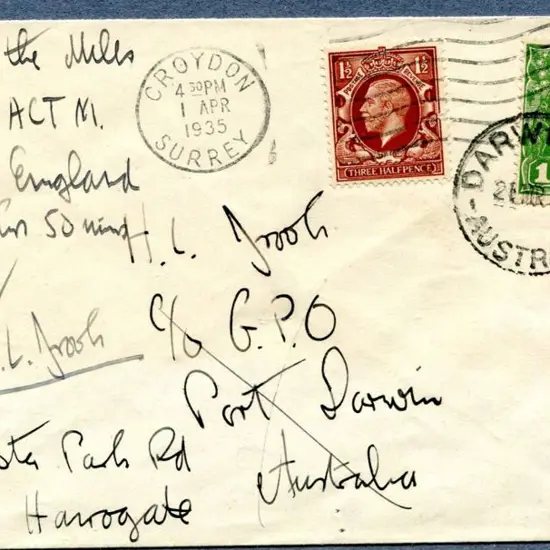 the Miles
ACT M.
England
50 mins
CROYDON
4 30 PM
1 APR
1935
SURREY
1½ 1½
POSTAGE REVENUE
THREE HALFPENCE
DARW
AUSTR
H. L. Brook
c/o G.P.O
Port Darwin
Australia
. L. Brook
Park Rd
Harrogate